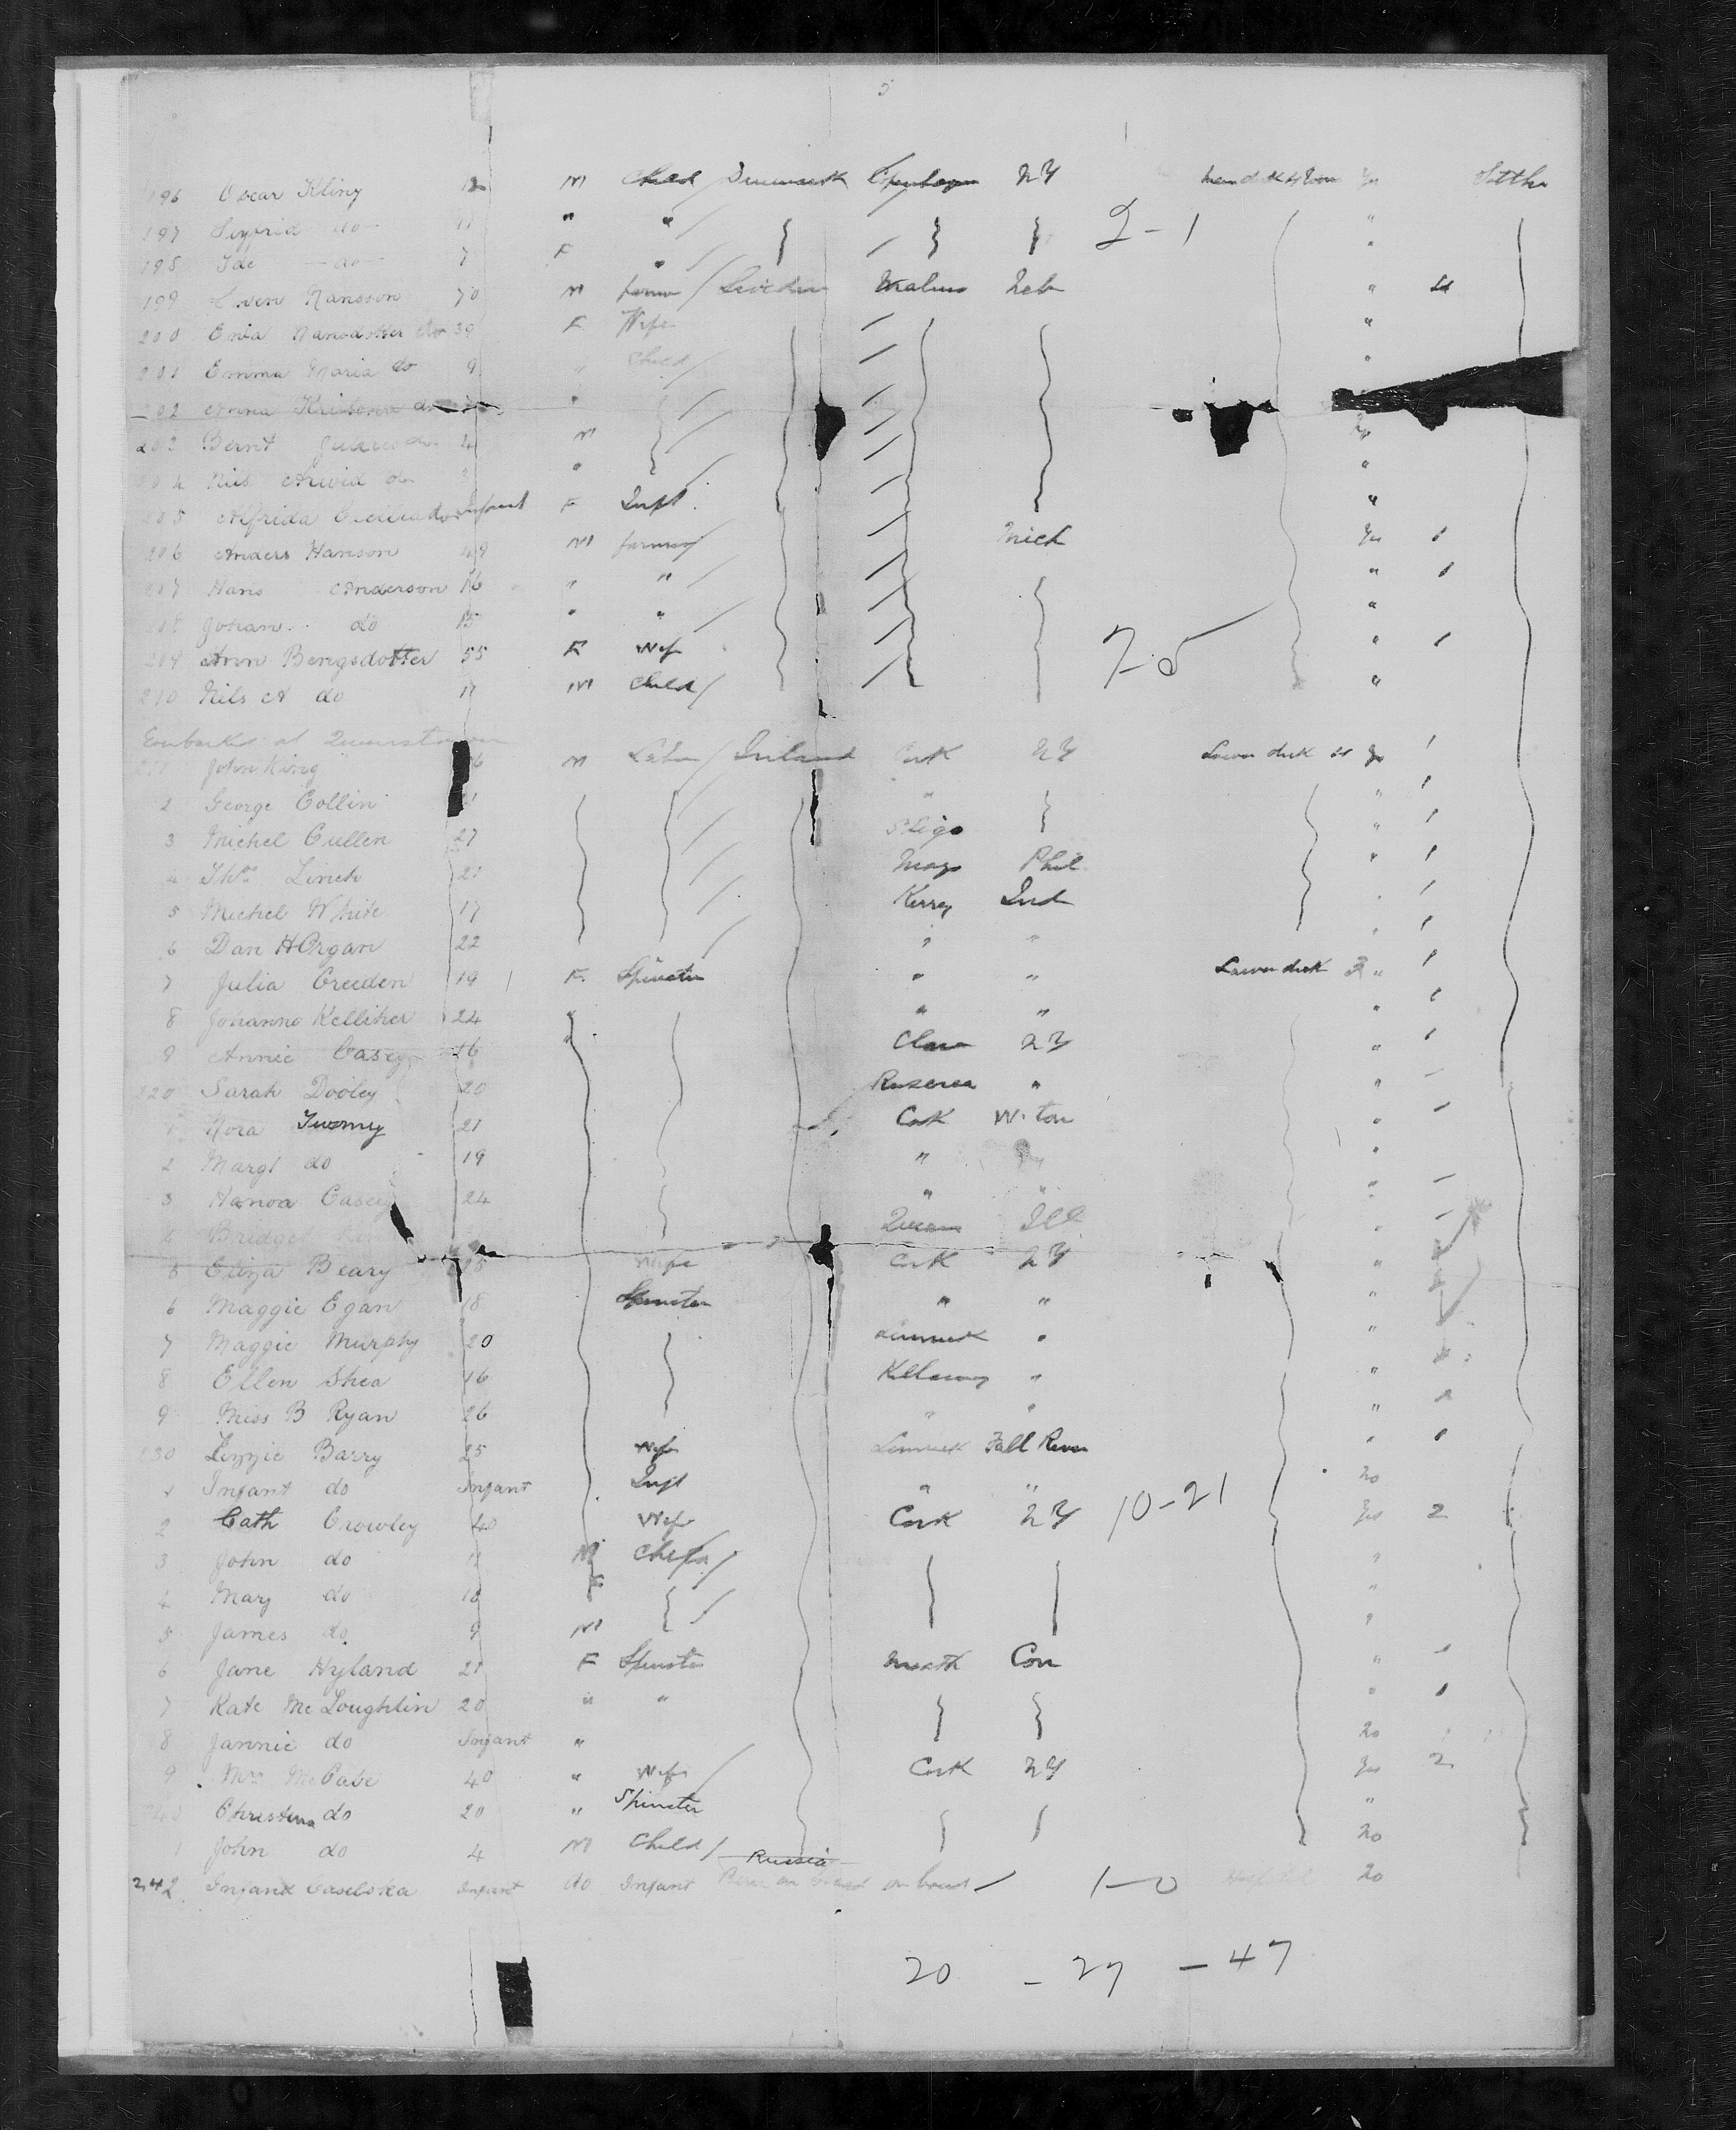 5
196 Oscar Kling 12 M Child Denmark Copenhagen NY Yes Settler
197 Sigfrid do 11 " " 2-1 "
198 Ida do 7 F " "
199 Swen Hansson 70 M farmer Sweden Malmo Neb " 4
200 Hansdotter do 39 F Wife "
201 Emma Maria do 9 " Child "
202 Anna do "
203 Bernt Julius do 4 M Yes
204 Nils Arvid do " "
205 Alfrida do Infant F Inft. "
206 Anders Hanson 49 M farmer Mich Yes 1
207 Hans Anderson 16 " " " 1
208 Johan do 15 " " "
209 Ann Bengsdotter 55 F Wife 7-5 " 1
210 Nils A do 11 M Child "
Embarked at Queenstown
211 John King M Labr Ireland Cork NY Lower deck Yes 1
2 George Collin " " 1
3 Michel Cullen 27 Sligo " 1
4 Thos Linch 21 Mayo Phil " 1
5 Michel White 17 Kerry Ind " 1
6 Dan HOrgan 22 " " " 1
7 Julia Creeden 19 F. Spinster " " Lower deck " 1
8 Johanno Kelliher 24 " " " " 1
9 Annie Casey 16 " Clare NY " 1
220 Sarah Dooley 20 Roscrea " "
1 Nora Twomy 21 Cork W. ton "
2 Margt do 19 " "
3 Hanoa Casey 24 " " "
4 Bridget Queens Ill "
5 Eliza Beary 25 Wife Cork NY "
6 Maggie Egan 18 Spinster " " "
7 Maggie Murphy 20 Limerick " "
8 Ellen Shea 16 Killarney " "
9 Miss B Ryan 26 " " "
230 Lizzie Barry 25 Wife Limerick Fall River " 1
1 Infant do Infant Inft " " No
2 Cath Crowley 40 Wife Cork NY 10-21 Yes 2
3 John do 11 M Child "
4 Mary do 10 F "
5 James do 9 M "
6 Jane Hyland 21 F Spinster Meath Con "
7 Kate McLoughlin 20 " " " 1
8 Jannie do Infant " No
9 Mrs McCabe 40 " Wife Cork NY Yes 2
240 Christina do 20 " Spinster "
1 John do 4 M Child No
Russia
242 Infant Infant do Infant Born on board 1-0 No
20 - 27 - 47